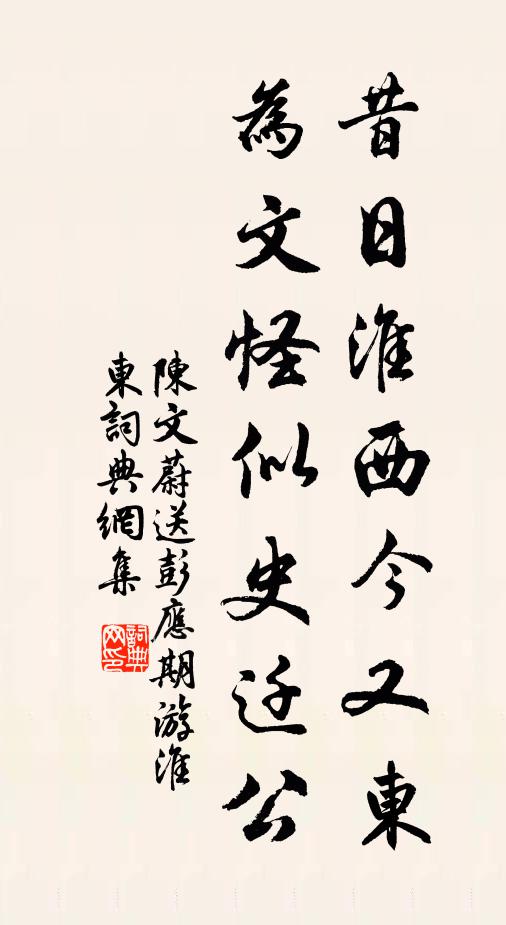 昔日淮西今又東
為文怪似史迁公
陳文蔚送彭應期游淮
東詞典網集
詞典网印